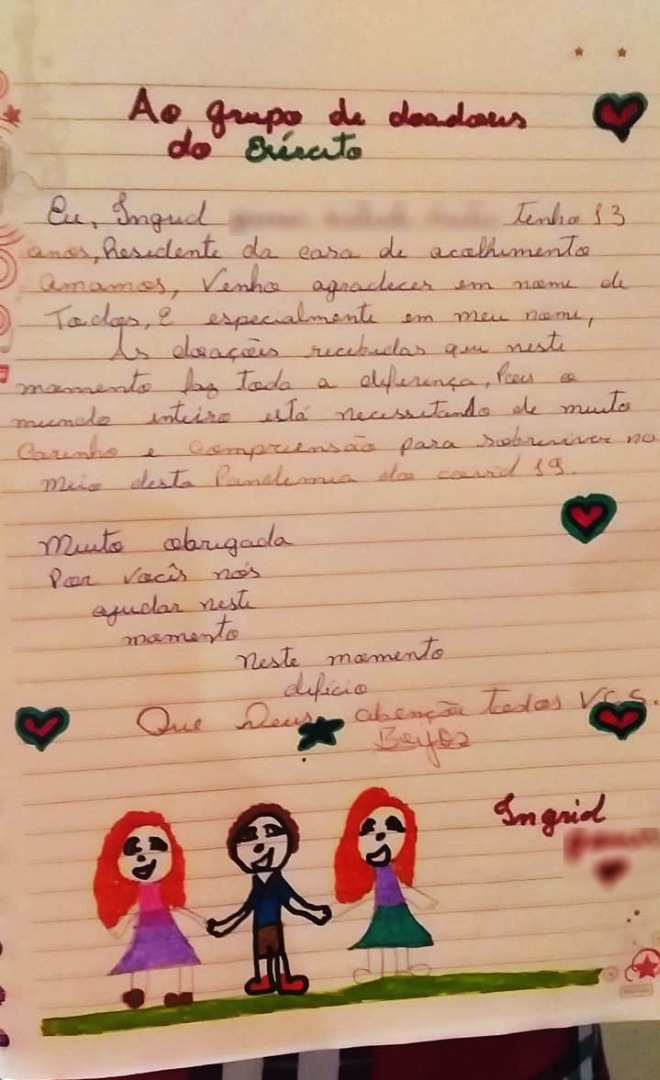 Ao grupo de doadores
do Exército
Eu, Ingrid tenho 13
anos, Residente da casa de acolhimento
amamos, Venho agradecer em nome de
Todos, E especialmente em meu nome,
As doações recebidas que neste
momento faz toda a diferença, Pois o
mundo inteiro está necessitando de muito
Carinho e Compreensão para sobreviver no
meio desta Pandemia da covid 19.
Muito obrigada
Por vocês nós
ajudar neste
momento
neste momento
difício
Que Deus abençõe todos vcs.
Beijos
Ingrid